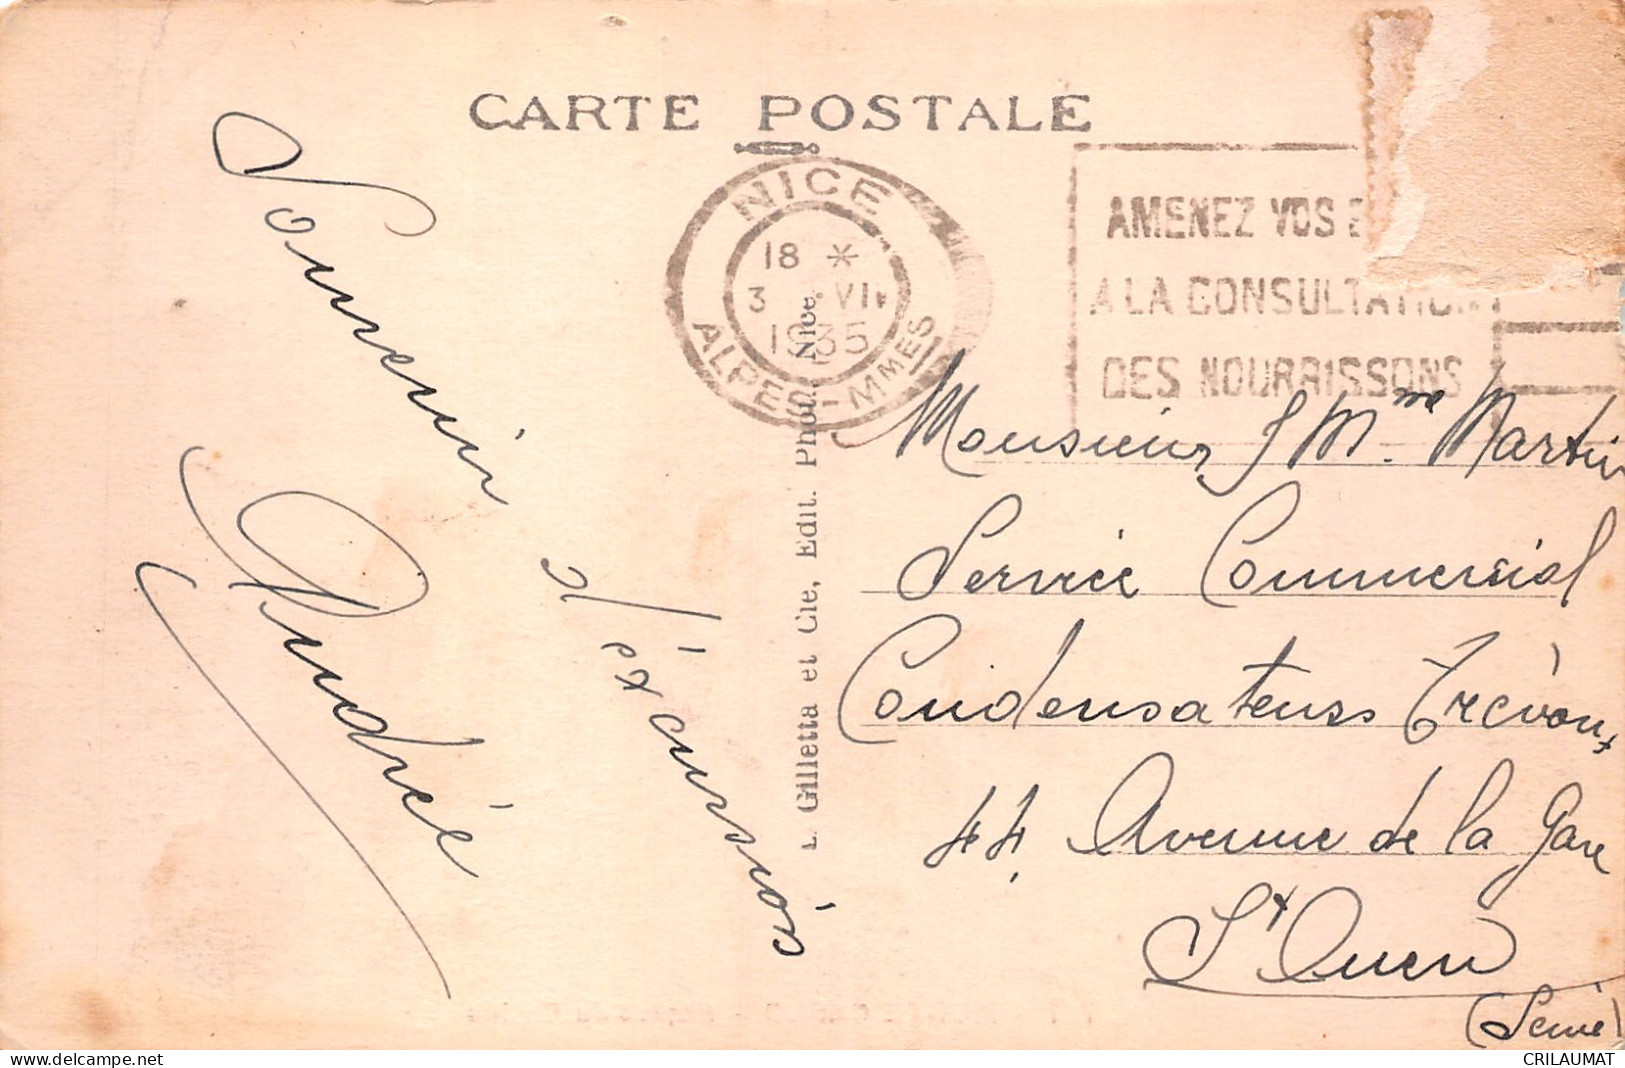 CARTE POSTALE
NICE
18 *
3 VII
1935
ALPES-MMES
AMENEZ VOS
A LA CONSULTATION
DES NOURRISSONS
Souvenir
d'excursion
André
L. Gilletta et Cie, Edit. Phot. Nice.
Monsieur & Mme Martin
Service Commercial
Condensateurs Trévoux
44 Avenue de la Gare
St Ouen
(Seine)
https://www.delcampe.net
CRILAUMAT